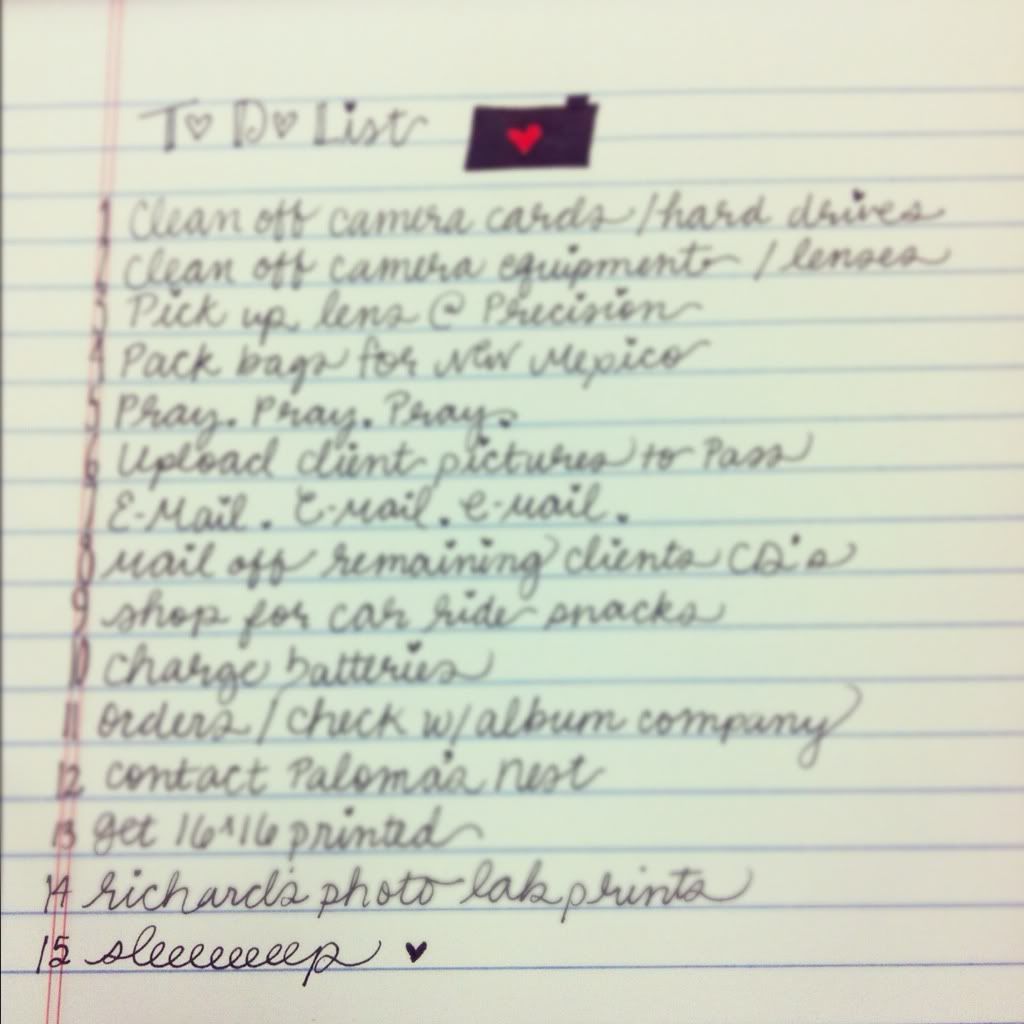 To Do List
1 Clean off camera cards/hard drives
2 Clean off camera equipment / lenses
3 Pick up lens @ Precision
4 Pack bags for New Mexico
5 Pray. Pray. Pray.
6 Upload client pictures to Pass
7 E-Mail. E-mail. e-mail.
8 Mail off remaining clients CD's
9 shop for car ride snacks
10 charge batteries
11 orders/check w/album company
12 contact Paloma's Nest
13 get 16^16 printed
14 richard's photo lab prints
15 sleeeeeeep ♥